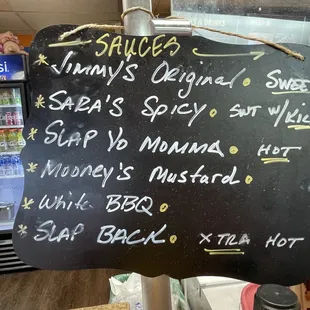 SAUCES
JIMMY'S Original. SWEET
SARA'S SPICY. SWT W/
SLAP YO MOMMA. HOT
MOONEY'S MUSTARD.
White BBQ.
SLAP BACK. XTRA HOT